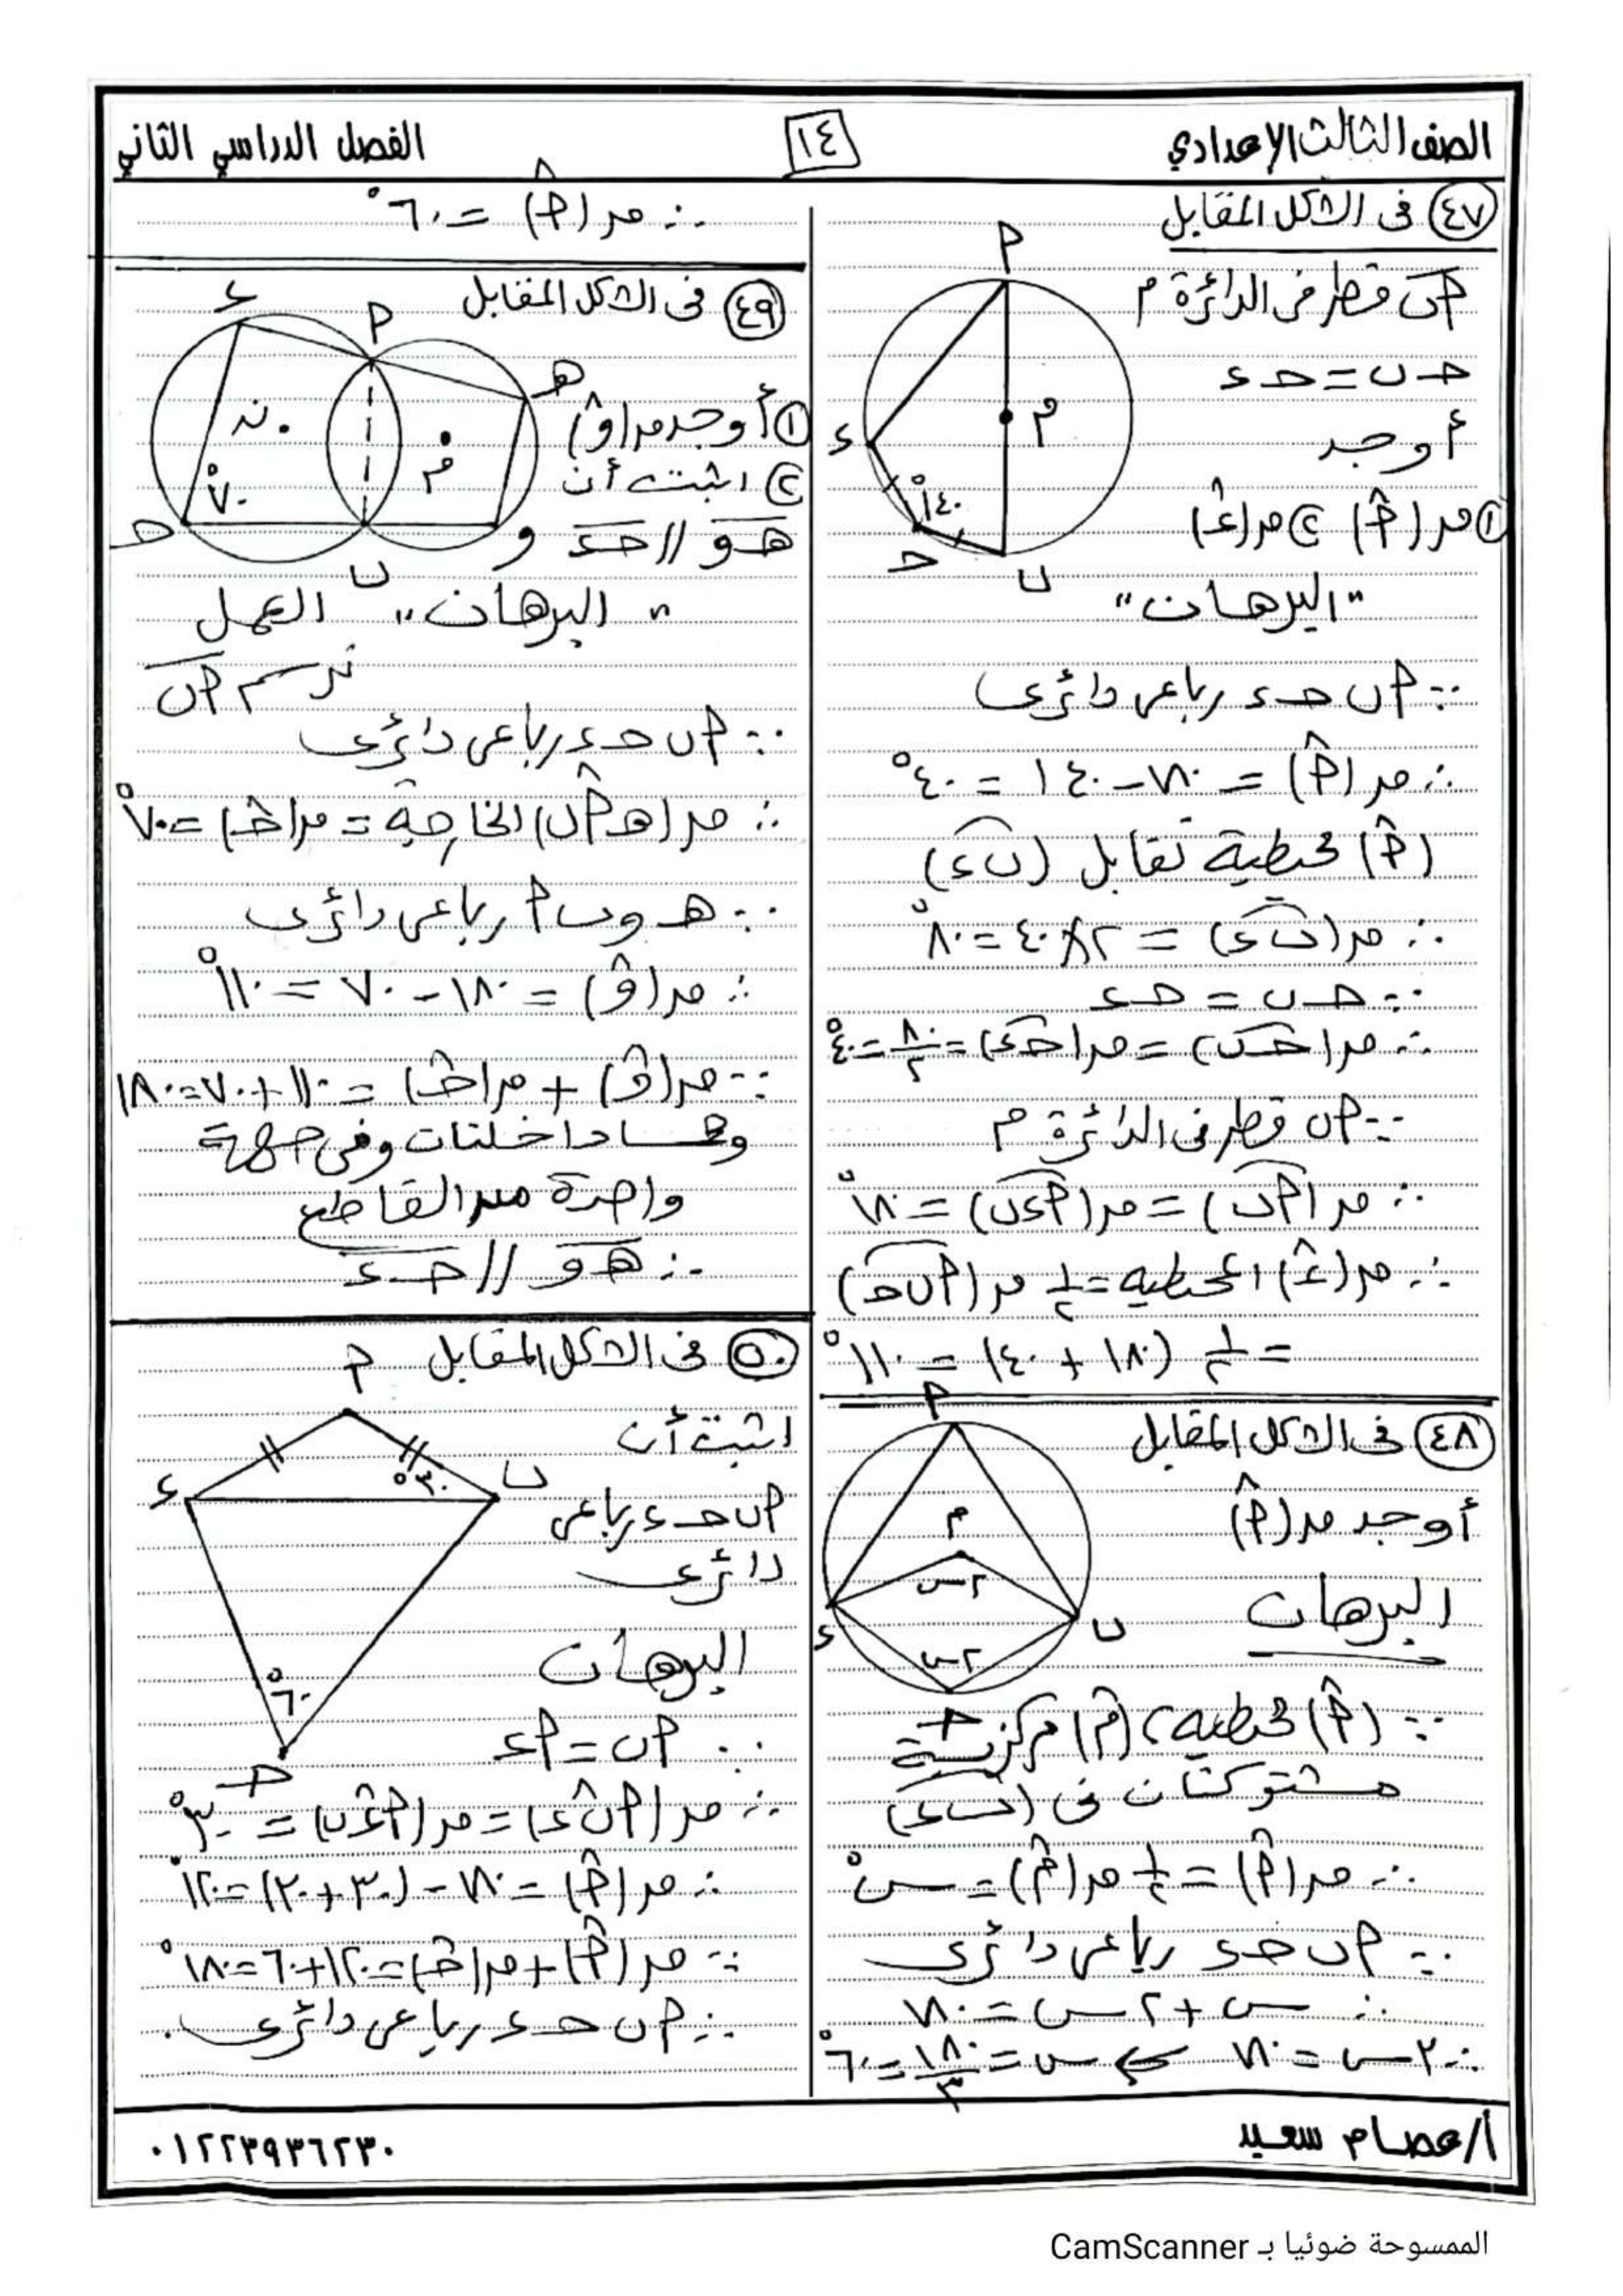 الصف الثالث الإعدادي
١٤
الفصل الدراسي الثاني
٤٧ فى الشكل المقابل
أب قطر فى الدائرة م
حـ ب = حـ ء
أوجد
① مـ(أ) ② مـ(ء)
أ
م
ء
١٤٠°
حـ
ب
"البرهان"
∵ أ ب حـ ء رباعى دائرى
∴ مـ(أ) = ١٨٠ - ١٤٠ = ٤٠°
(أ) محيطية تقابل (ب ء)
∴ مـ(ب ء) = ٢ × ٤٠ = ٨٠°
∵ حـ ب = حـ ء
∴ مـ(حـ ب) = مـ(حـ ء) = ٨٠/٢ = ٤٠°
∵ أ ب قطر فى الدائرة م
∴ مـ(أ ب) = مـ(أ ء ب) = ١٨٠°
∴ مـ(ء) المحيطيه = ١/٢ مـ(أ ب حـ)
= ١/٢ (١٨٠ + ٤٠) = ١١٠°
٤٨ فى الشكل المقابل
أوجد مـ(أ)
أ
م
٢س
ء
ب
٢س
حـ
البرهان
∵ (أ) محيطيه، (م) مركزية
مشتركتان فى (ب ء)
∴ مـ(أ) = ١/٢ مـ(م) = س°
∵ أ ب حـ ء رباعى دائرى
∴ س + ٢س = ١٨٠
∴ ٣س = ١٨٠ ⇐ س = ١٨٠/٣ = ٦٠°
∴ مـ(أ) = ٦٠°
٤٩ فى الشكل المقابل
① أوجد مـ(و)
② اثبت أن
هـ و // حـ ء
ء
أ
هـ
ن
م
٧٠°
حـ
ب
و
"البرهان" العمل
نرسم أ ب
∵ أ ب حـ ء رباعى دائرى
∴ مـ(هـ أ ب) الخارجة = مـ(حـ) = ٧٠°
∵ هـ و ب أ رباعى دائرى
∴ مـ(و) = ١٨٠ - ٧٠ = ١١٠°
∵ مـ(و) + مـ(حـ) = ١١٠ + ٧٠ = ١٨٠
وهما داخلتان وفى جهة
واحدة من القاطع
∴ هـ و // حـ ء
٥٠ فى الشكل المقابل
اثبت أن
أ ب حـ ء رباعى
دائرى
أ
ء
ب
٣٠°
٦٠°
حـ
البرهان
∵ أ ب = أ ء
∴ مـ(أ ب ء) = مـ(أ ء ب) = ٣٠°
∴ مـ(أ) = ١٨٠ - (٣٠ + ٣٠) = ١٢٠°
∵ مـ(أ) + مـ(حـ) = ١٢٠ + ٦٠ = ١٨٠°
∴ أ ب حـ ء رباعى دائرى.
أ/عصام سعيد
٠١٢٢٣٩٣٦٢٣٠
الممسوحة ضوئيا بـ CamScanner